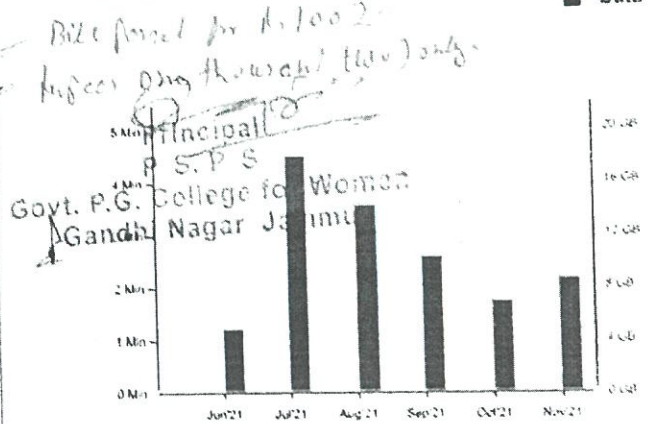 Data
Bill passed for Rs 1002
Rupees One thousand (two) only.
Principal
P S. P S
Govt. P.G. College for Women
Gandhi Nagar Jammu
5 Min
4 Min
2 Min
1 Min
0 Min
20 GB
16 GB
12 GB
8 GB
4 GB
0 GB
Jun'21 Jul'21 Aug'21 Sep'21 Oct'21 Nov'21